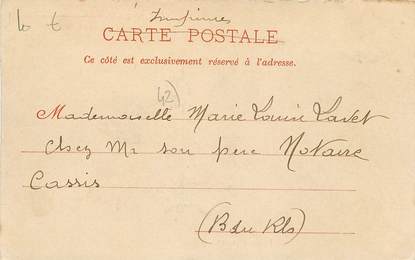 Imprimés
CARTE POSTALE
Ce côté est exclusivement réservé à l'adresse.
42)
Mademoiselle Marie Louise Lavet
Chez Mr son père Notaire
Cassis
(B du Rh)